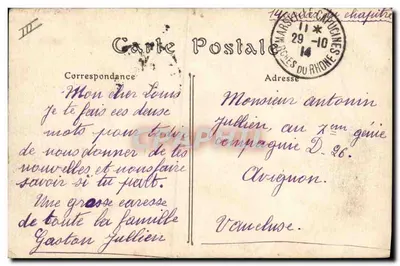 III
du chapitre
Carte Postale
MARSEILLE-CAPUCINES
11 *
29-10
14
BOUCHES DU RHONE
Correspondance
Adresse
Mon cher Louis
Je te fais ces deux
mots pour
de nous donner de tes
nouvelles et nous faire
savoir si tu part.
Une grosse caresse
de toute la famille
Gaston Jullien
Monsieur antonin
Jullien, au 7em génie
Compagnie D. 26.
Avignon.
Vaucluse.